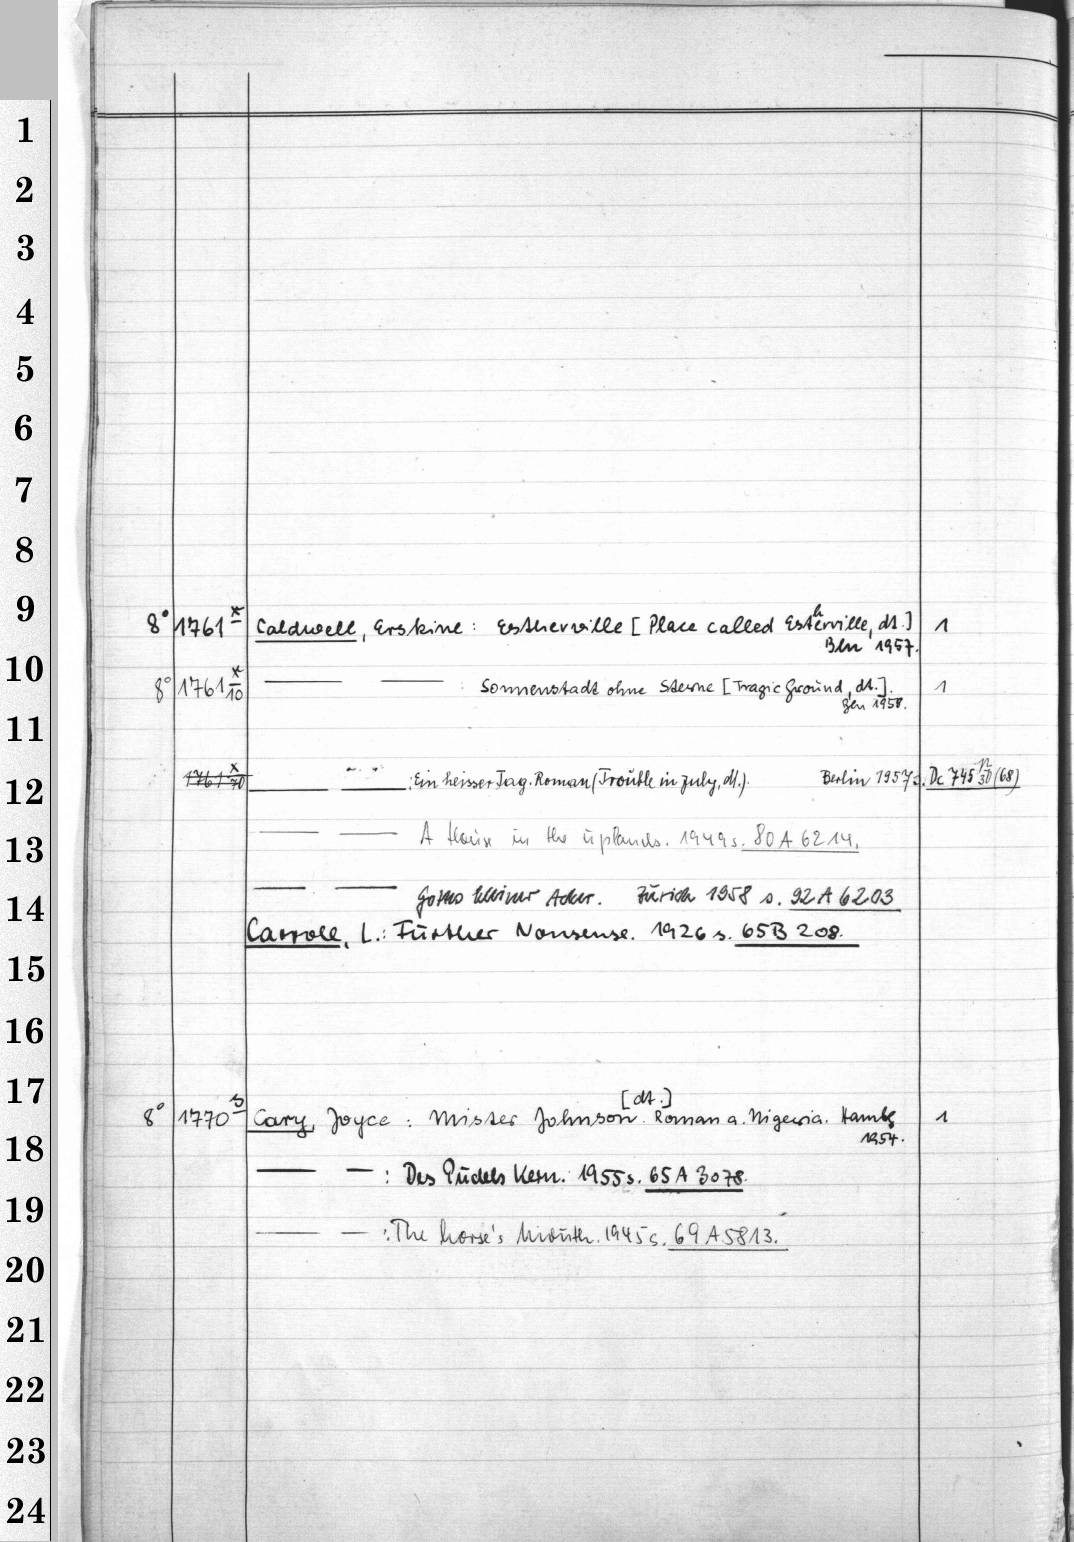 1
2
3
4
5
6
7
8
9
8° 1761 x Caldwell, Erskine: Estherville [Place called Estherville, dt.] 1
Bln 1957.
10
8° 1761 x/10 — — : Sonnenstadt ohne Sterne [Tragic Ground, dt.]. 1
Bln 1958.
11
12
1761 x/70 — — : Ein heisser Tag. Roman (Trouble in July, dt.) Berlin 1957 s. Dc 745 n/30 (68)
13
— — A House in the uplands. 1949 s. 80 A 6214.
14
— — Gottes kleiner Acker. Zürich 1958 s. 92 A 6203
Carroll, L.: Further Nonsense. 1926 s. 65 B 208.
15
16
17
[dt.]
8° 1770 Cary, Joyce: Mister Johnson. Roman a. Nigeria. Hambg 1
1954.
18
— — : Des Pudels Kern. 1955 s. 65 A 3078.
19
— — : The horse's mouth. 1945 s. 69 A 5813.
20
21
22
23
24